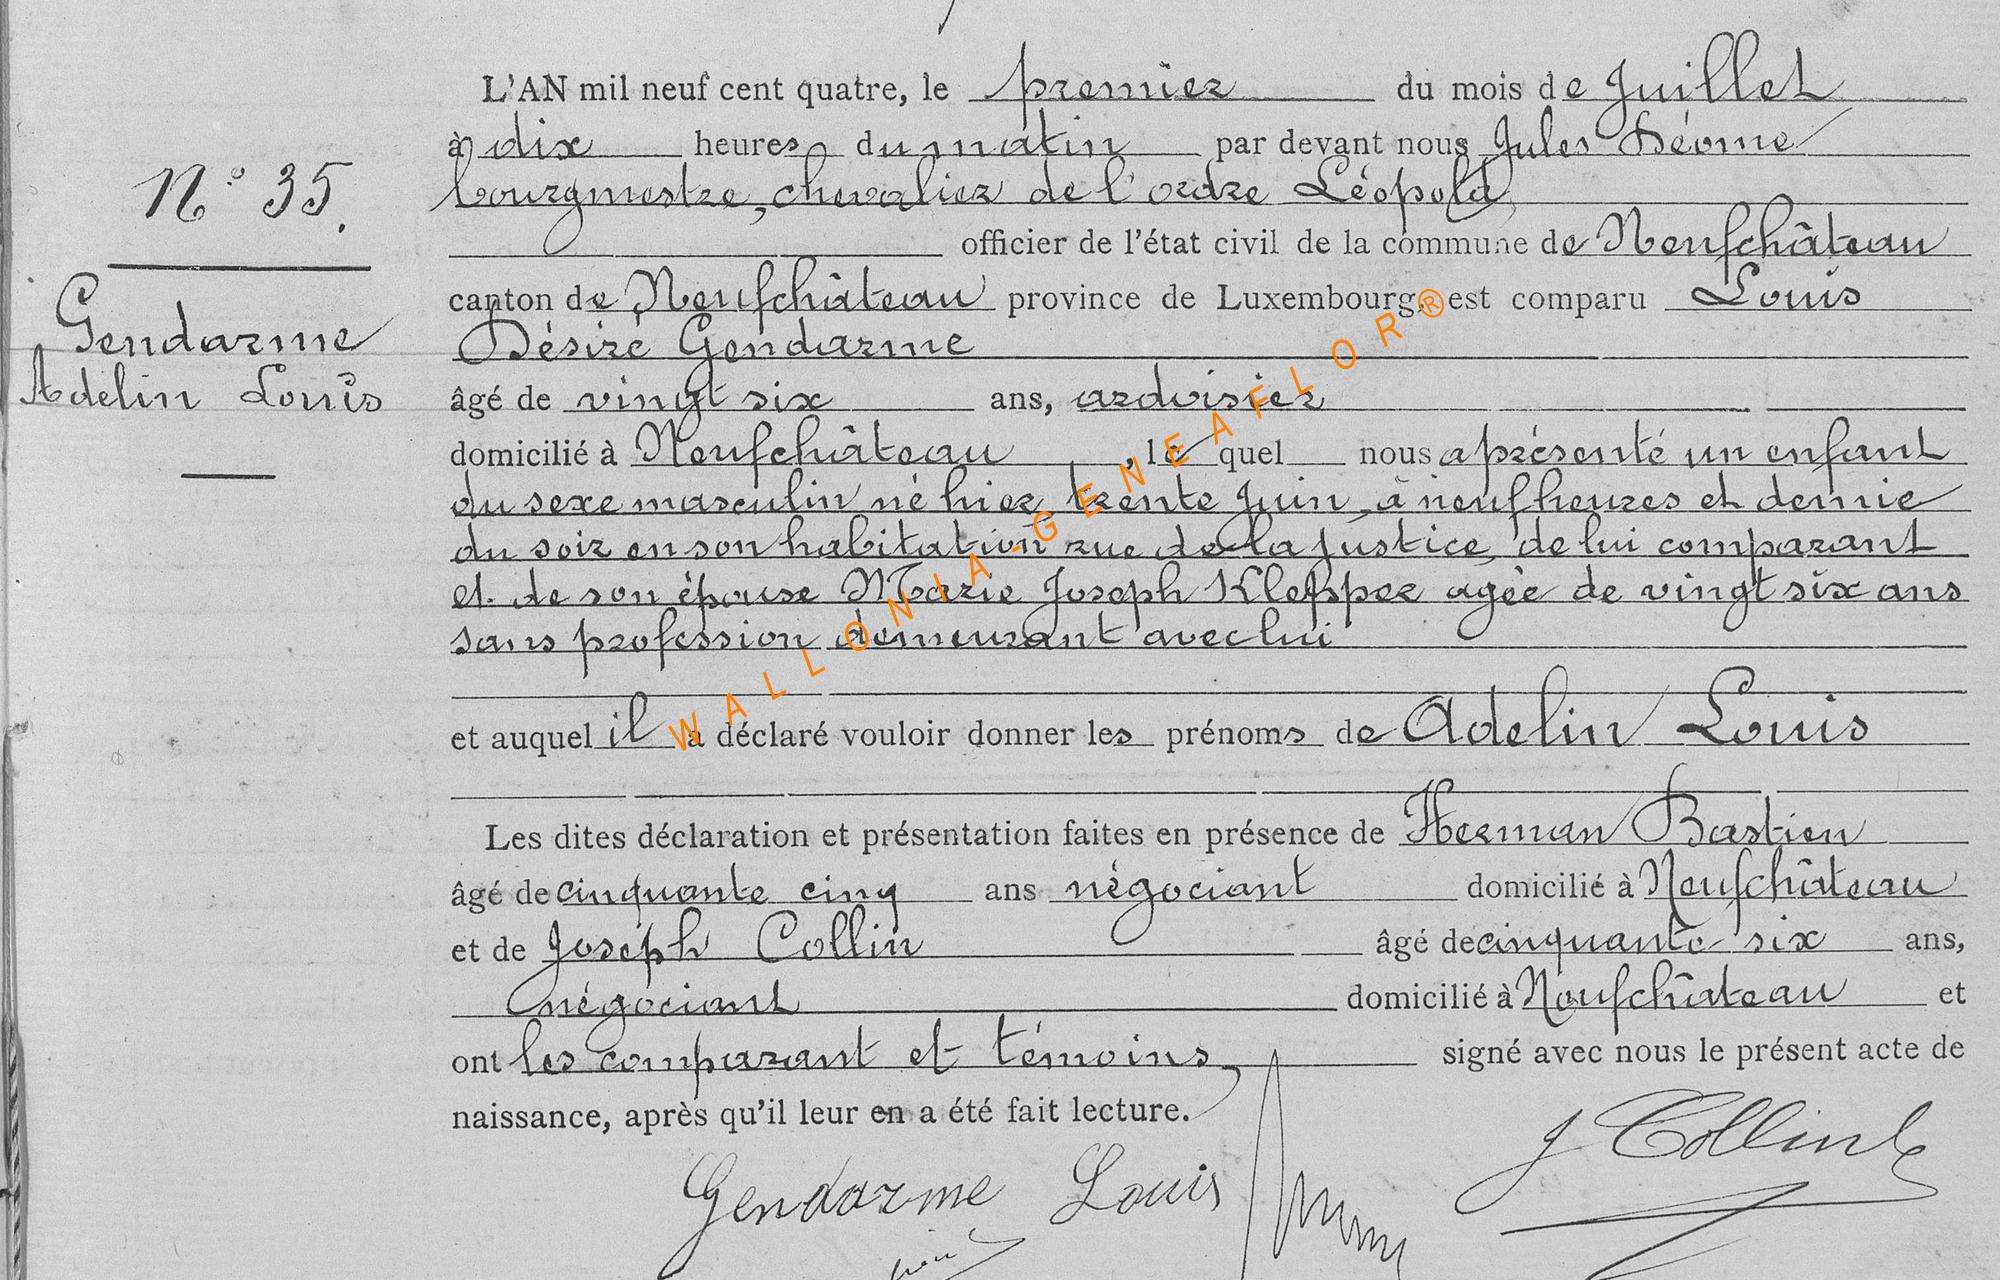 N° 35.
Gendarme
Adelin Louis
L'AN mil neuf cent quatre, le premier du mois de Juillet
à dix heures du matin par devant nous Jules Déome
bourgmestre, chevalier de l'ordre Léopold
officier de l'état civil de la commune de Neufchâteau
canton de Neufchâteau province de Luxembourg, est comparu Louis
Désiré Gendarme
âgé de vingt six ans, ardoisier
domicilié à Neufchâteau, le quel nous a présenté un enfant
du sexe masculin né hier, trente Juin, à neuf heures et demie
du soir en son habitation rue de la Justice, de lui comparant
et de son épouse Marie Joseph Klepper agée de vingt six ans
sans profession demeurant avec lui
et auquel il a déclaré vouloir donner les prénoms de Adelin Louis
Les dites déclaration et présentation faites en présence de Herman Bastien
âgé de cinquante cinq ans négociant domicilié à Neufchâteau
et de Joseph Collin âgé de cinquante six ans,
négociant domicilié à Neufchâteau et
ont les comparant et témoins, signé avec nous le présent acte de
naissance, après qu'il leur en a été fait lecture.
J Collin
Gendarme Louis
WALLONIA-GENEAFLOR®